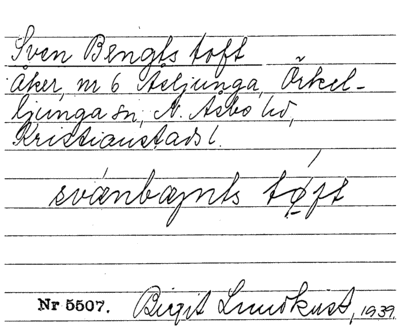 Sven Bengts toft
Åker, nr 6 Åsljunga, Örkel-
ljunga sn, N. Åsbo hd,
Kristianstads l.
svánbæŋts tǫ́ft
Nr 5507. Birgit Lundkvist, 1939.